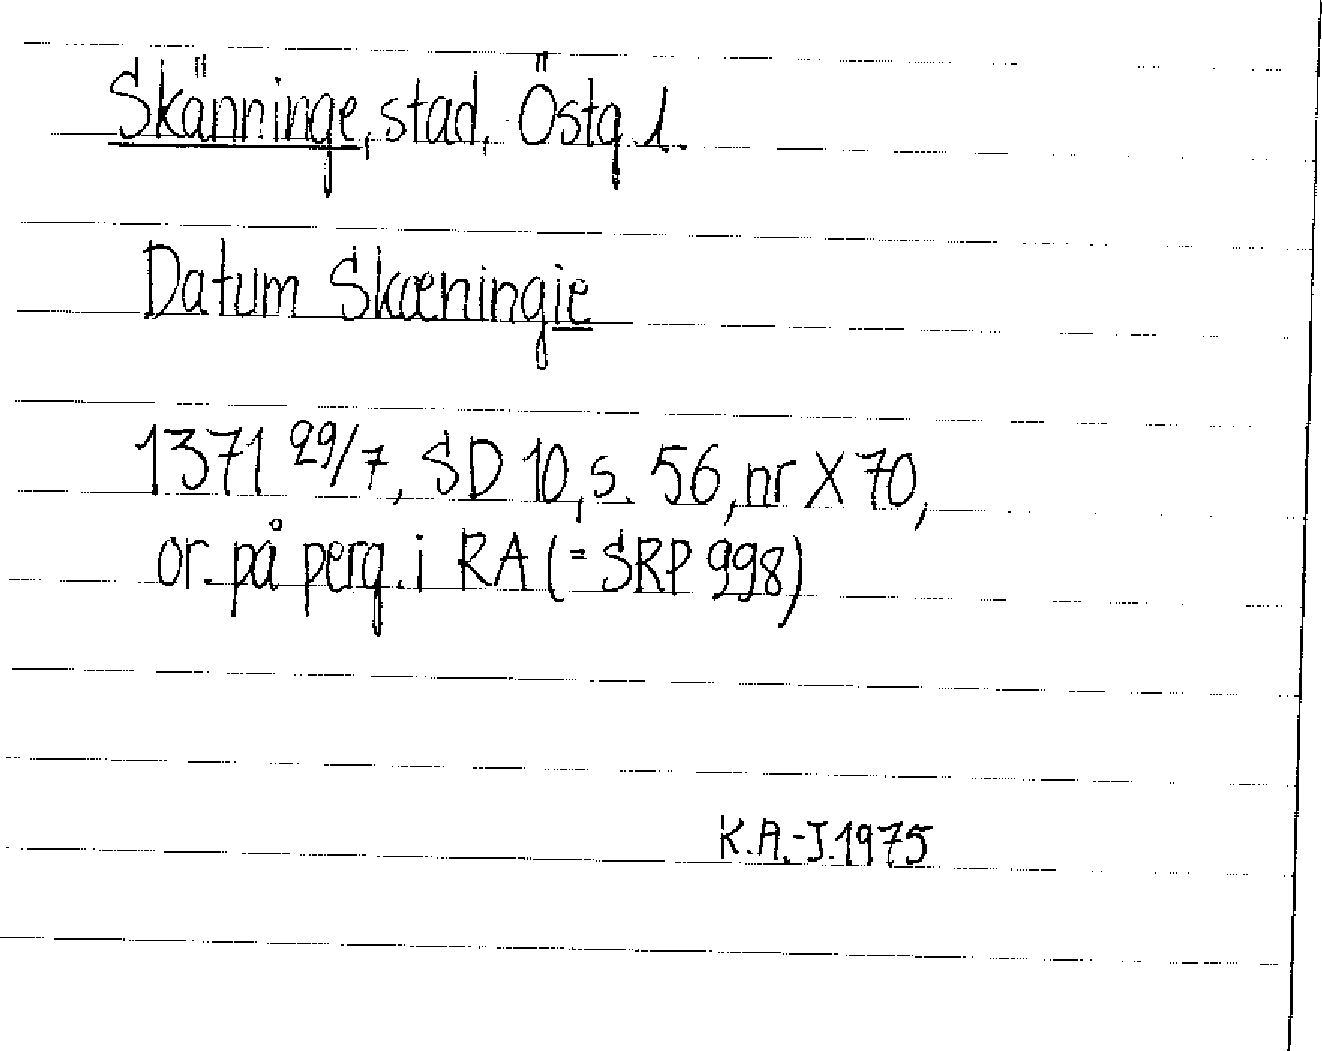 Skänninge, stad, Östg l.
Datum Skæningie
1371 29/7, SD 10, s. 56, nr X 70,
or. på perg. i RA (= SRP 998)
K.A.-J. 1975